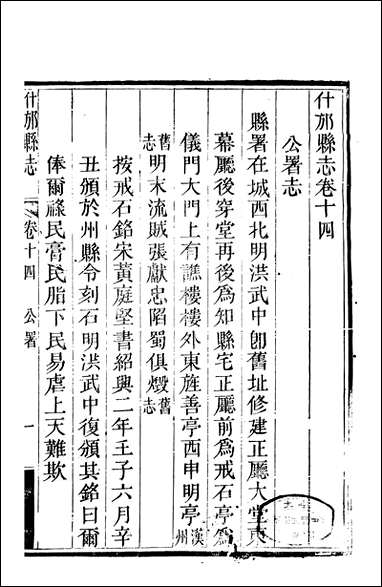 什邡縣志卷十四
公署志
縣署在城西北明洪武中卽舊址修建正廳大堂東
幕廳後穿堂再後爲知縣宅正廳前爲戒石亭爲
儀門大門上有譙樓樓外東旌善亭西申明亭漢州
舊志明末流賊張獻忠陷蜀俱燬舊志
按戒石銘宋黃庭堅書紹興二年壬子六月辛
丑頒於州縣令刻石明洪武中復頒其銘曰爾
俸爾祿民膏民脂下民易虐上天難欺
什邡縣志
卷十四
公署
一